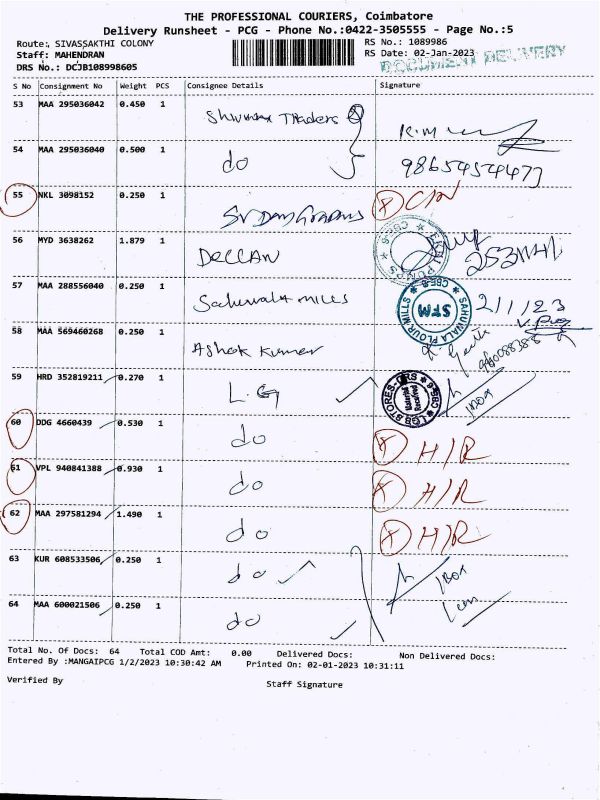 THE PROFESSIONAL COURIERS, Coimbatore
Delivery Runsheet - PCG - Phone No.:0422-3505555 - Page No.:5
Route: SIVASSAKTHI COLONY
RS No.: 1089986
Staff: MAHENDRAN
RS Date: 02-Jan-2023
DRS No.: DCJB108998605
DOCUMENT DELIVERY
S No Consignment No Weight PCS Consignee Details Signature
53 MAA 295036042 0.450 1 Traders
54 MAA 295036040 0.500 1 do
55 NKL 3098152 0.250 1
56 MYD 3638262 1.879 1 DECCAN
57 MAA 288556040 0.250 1 Sahuwala mills 2/1/23
SAHUWALA FLOUR MILLS CBE-5 SFM
58 MAA 569460268 0.250 1 Ashok Kumar
59 HRD 352819211 0.270 1 L.G 1 BOX
LGB STORES-GRS Material Received
60 DDG 4660439 0.530 1 do H/R
61 VPL 940841388 0.930 1 do H/R
62 MAA 297581294 1.490 1 do H/R
63 KUR 608533506 0.250 1 do 1 BOX
64 MAA 600021506 0.250 1 do
Total No. Of Docs: 64 Total COD Amt: 0.00 Delivered Docs: Non Delivered Docs:
Entered By :MANGAIPCG 1/2/2023 10:30:42 AM Printed On: 02-01-2023 10:31:11
Verified By Staff Signature